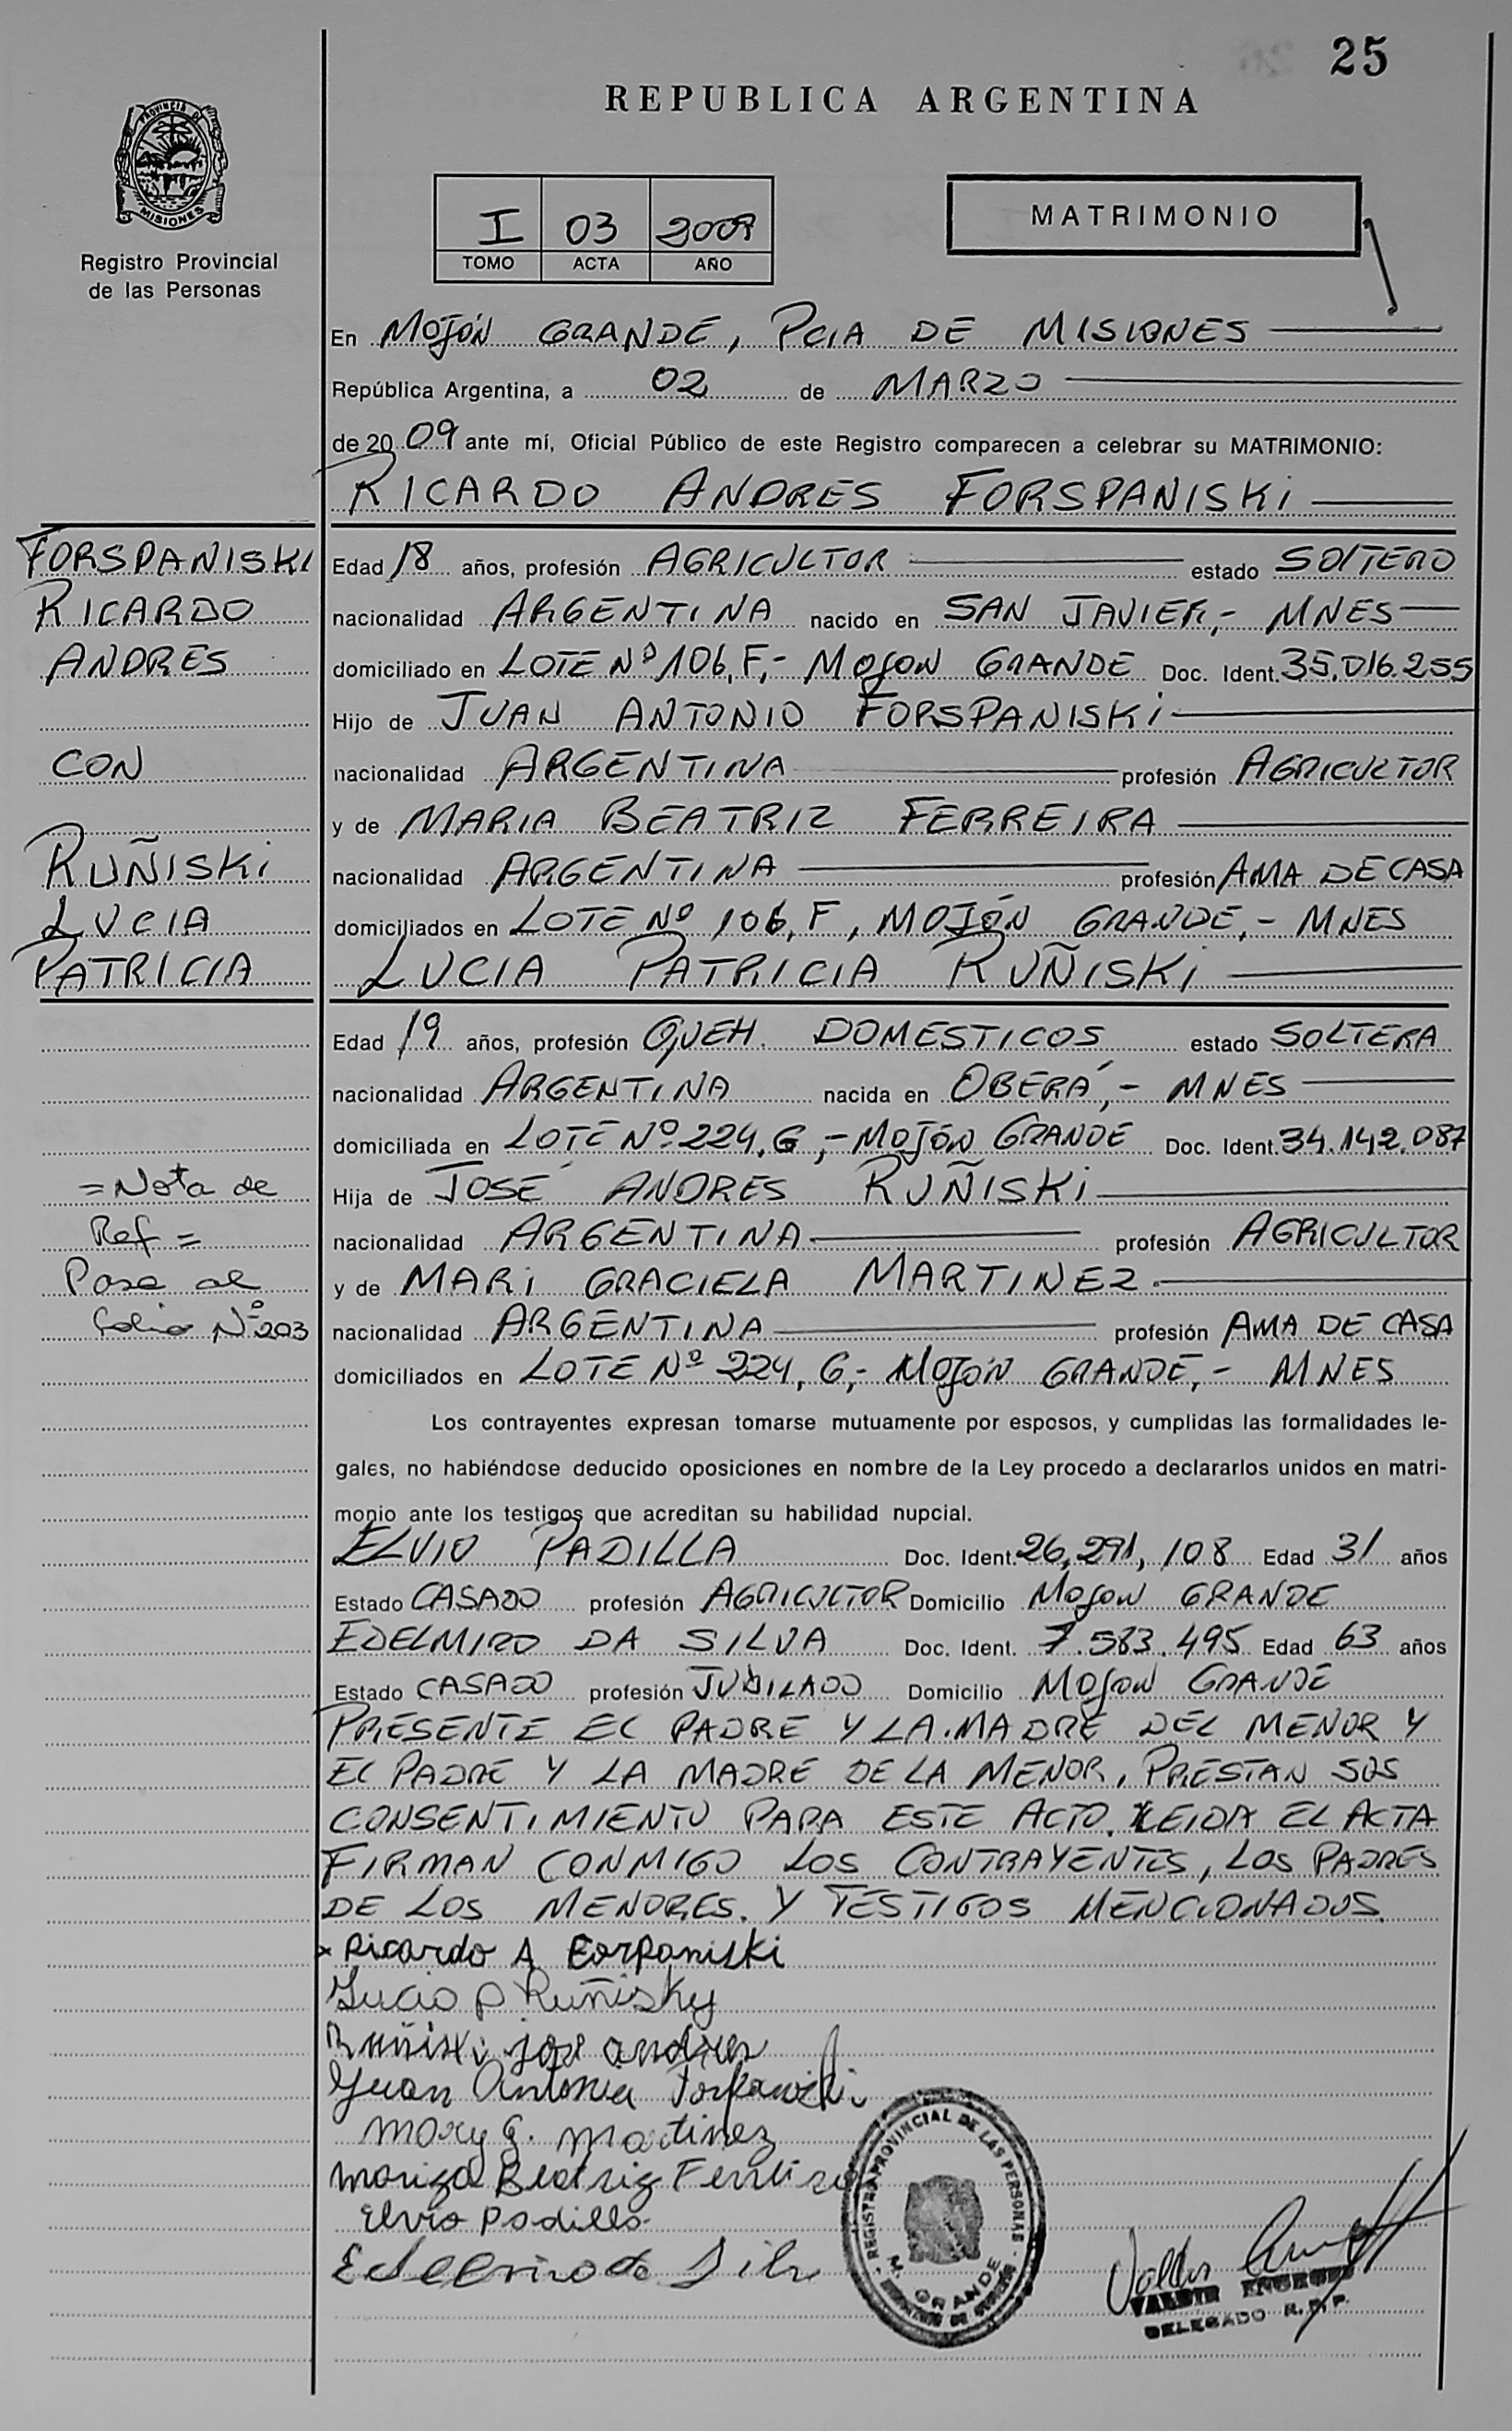 25
REPUBLICA ARGENTINA
PROVINCIA DE
MISIONES
Registro Provincial
de las Personas
I 03 2009
TOMO ACTA AÑO
MATRIMONIO
En MOJÓN GRANDE, PCIA DE MISIONES
República Argentina, a 02 de MARZO
de 20 09 ante mí, Oficial Público de este Registro comparecen a celebrar su MATRIMONIO:
RICARDO ANDRES FORSPANISKI
FORSPANISKI
RICARDO
ANDRES
CON
RUÑISKI
LUCIA
PATRICIA
Edad 18 años, profesión AGRICULTOR estado SOLTERO
nacionalidad ARGENTINA nacido en SAN JAVIER,- MNES
domiciliado en LOTE Nº 106, F,- MOJON GRANDE Doc. Ident. 35.016.255
Hijo de JUAN ANTONIO FORSPANISKI
nacionalidad ARGENTINA profesión AGRICULTOR
y de MARIA BEATRIZ FERREIRA
nacionalidad ARGENTINA profesión AMA DE CASA
domiciliados en LOTE Nº 106, F, MOJÓN GRANDE,- MNES
LUCIA PATRICIA RUÑISKI
Edad 19 años, profesión QUEH. DOMESTICOS estado SOLTERA
nacionalidad ARGENTINA nacida en OBERÁ,- MNES
domiciliada en LOTE Nº 224, G,- MOJÓN GRANDE Doc. Ident. 34.142.087
Hija de JOSÉ ANDRES RUÑISKI
nacionalidad ARGENTINA profesión AGRICULTOR
y de MARI GRACIELA MARTINEZ
nacionalidad ARGENTINA profesión AMA DE CASA
domiciliados en LOTE Nº 224, G,- MOJÓN GRANDE,- MNES
= Nota de
Ref =
Pasa al
folio Nº 203
Los contrayentes expresan tomarse mutuamente por esposos, y cumplidas las formalidades le-
gales, no habiéndose deducido oposiciones en nombre de la Ley procedo a declararlos unidos en matri-
monio ante los testigos que acreditan su habilidad nupcial.
ELVIO PADILLA Doc. Ident. 26,291,108 Edad 31 años
Estado CASADO profesión AGRICULTOR Domicilio MOJON GRANDE
EDELMIRO DA SILVA Doc. Ident. 7.583.495 Edad 63 años
Estado CASADO profesión JUBILADO Domicilio MOJON GRANDE
PRESENTE EL PADRE Y LA MADRE DEL MENOR Y
EL PADRE Y LA MADRE DE LA MENOR, PRESTAN SUS
CONSENTIMIENTO PARA ESTE ACTO. LEIDA EL ACTA
FIRMAN CONMIGO LOS CONTRAYENTES, LOS PADRES
DE LOS MENORES. Y TESTIGOS MENCIONADOS.
x Ricardo A Forpaniski
Lucia P Ruñisky
Ruñiski jose andres
Juan Antonio Forpaniski
Mary G. Martinez
Mariza Beatriz Ferreira
Elvio Padilla
Edelmiro da Silva
REGISTRO PROVINCIAL DE LAS PERSONAS
M. GRANDE
VALDIR
DELEGADO R.P.P.